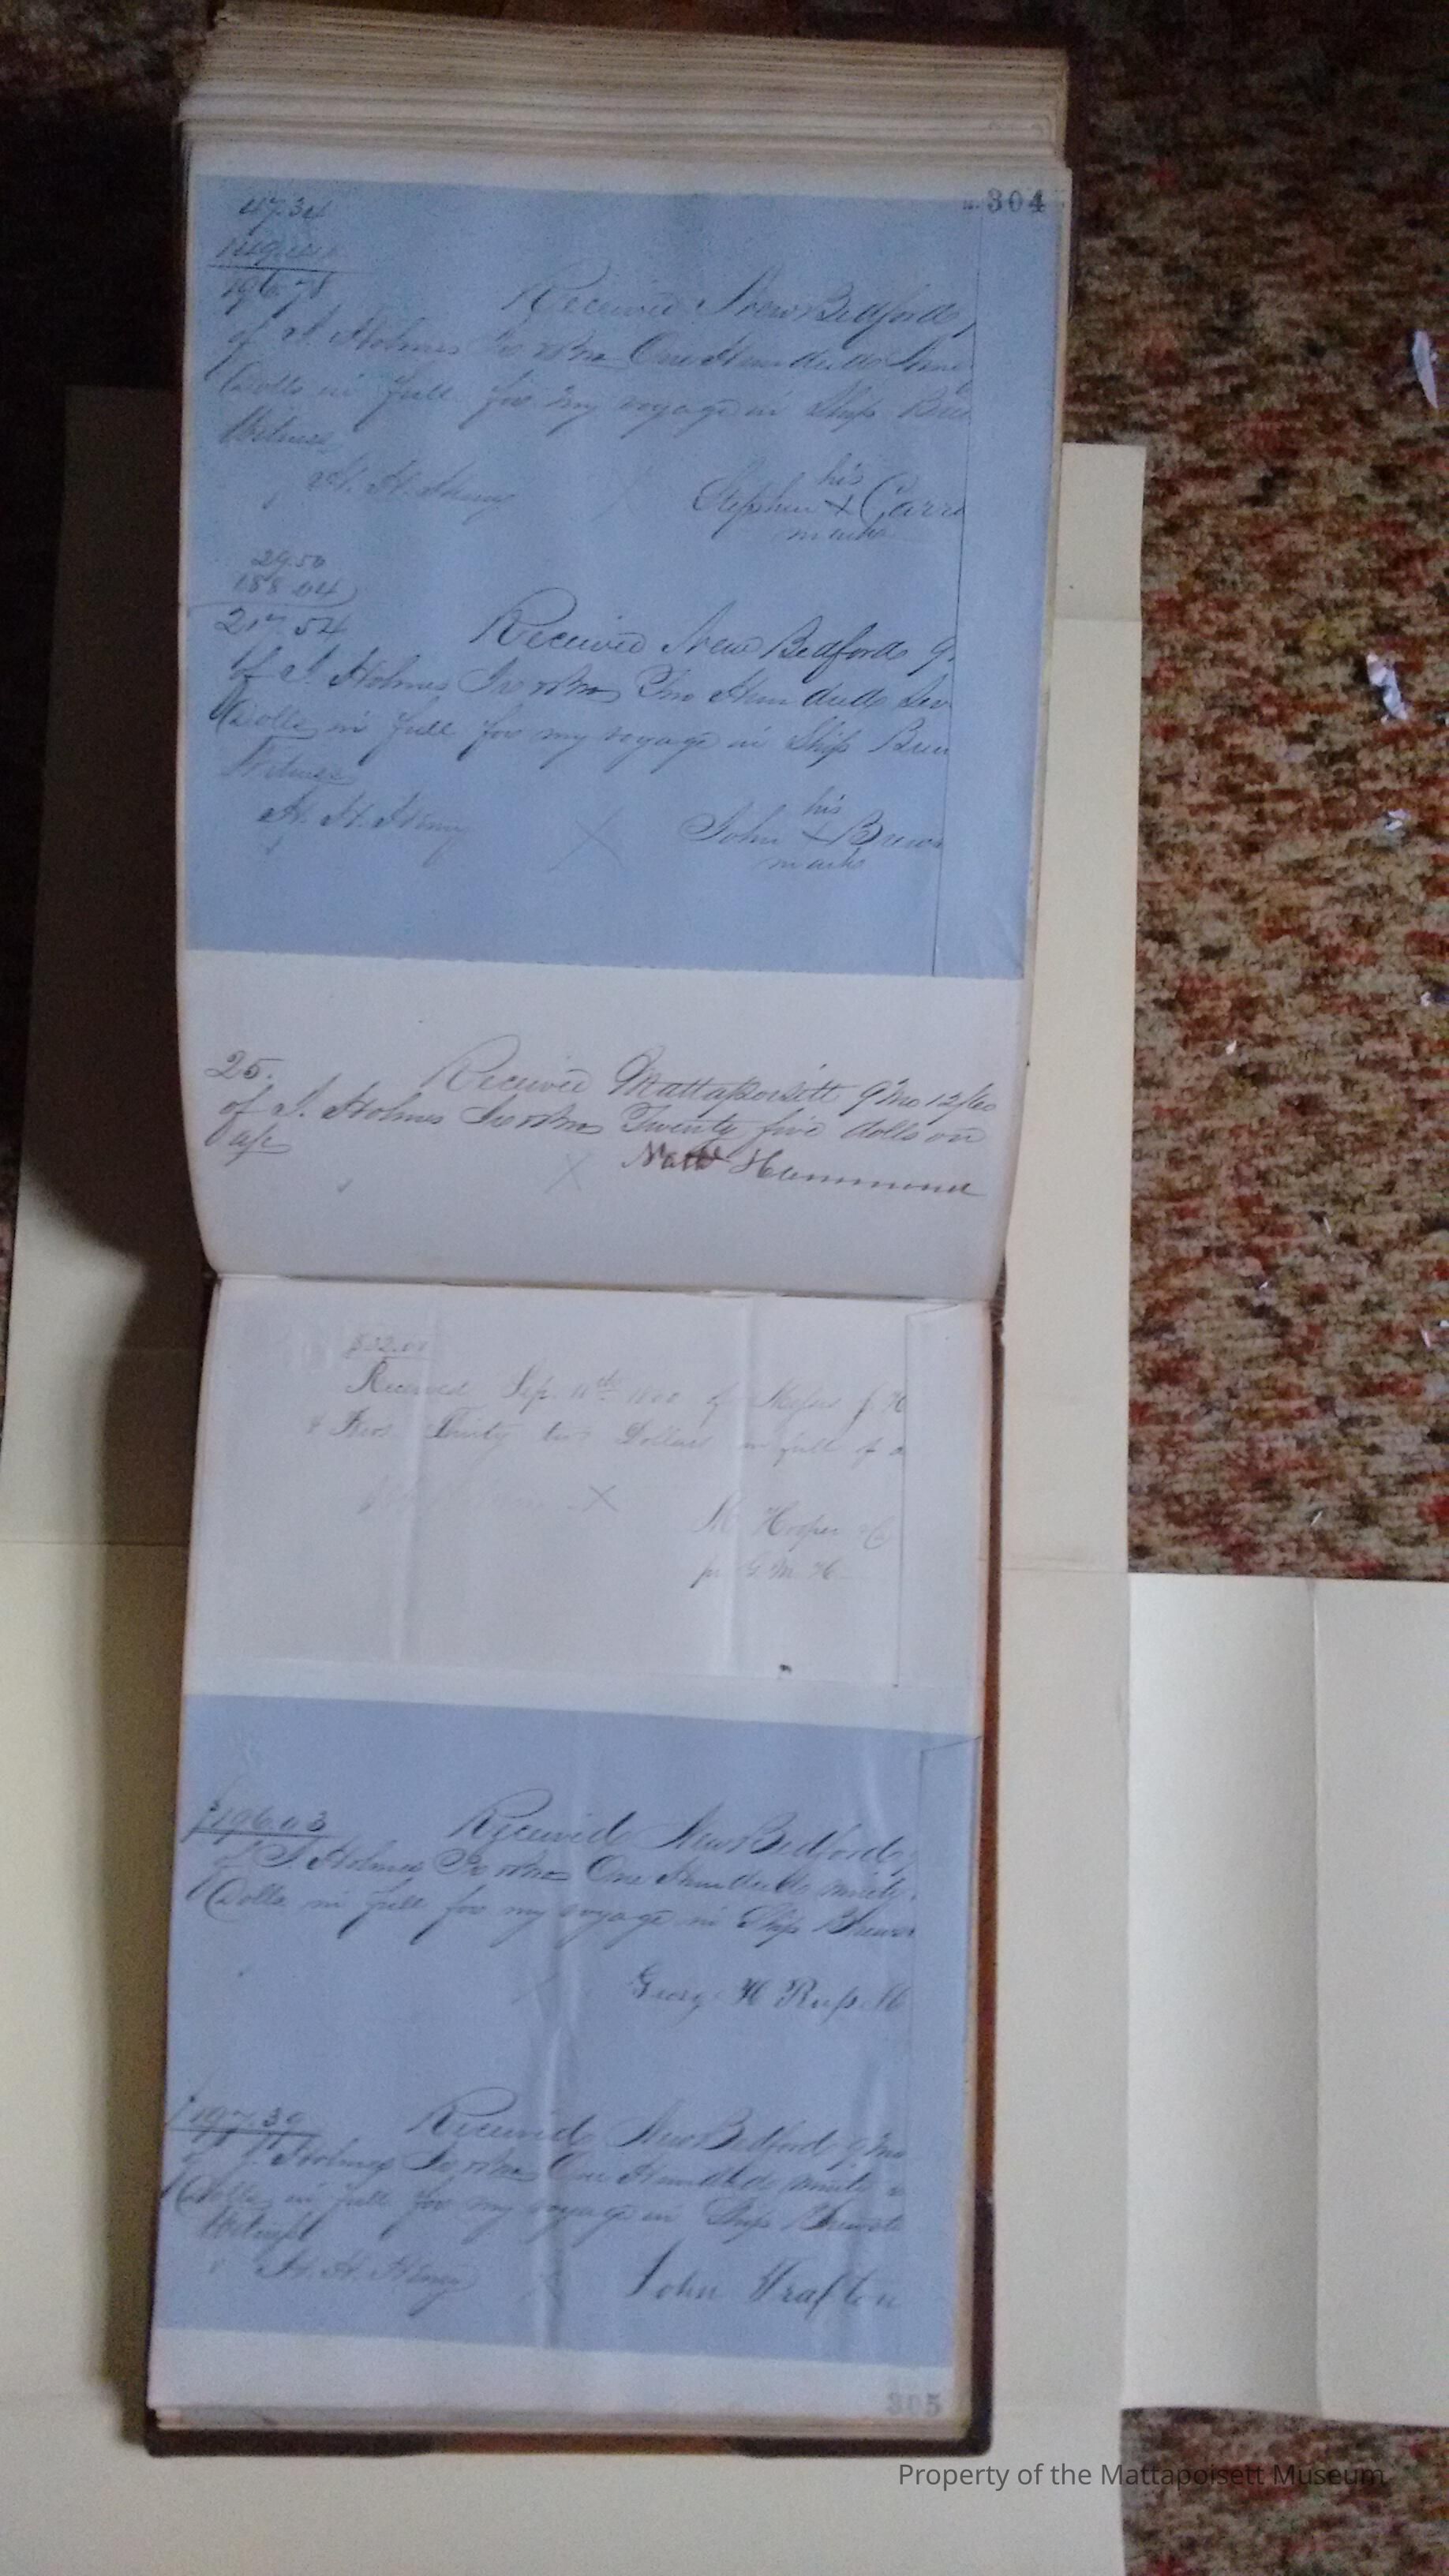 304
47.34
149.44
196.78
Received New Bedford,
of J. Holmes Jr & Bro One Hundred
Dolls in full for my voyage in Ship
Witness
his
Stephen +
mark
29.50
188.04
217.54
Received New Bedford 9.
of J. Holmes Jr & Bro Two Hundred Sev
Dolls in full for my voyage in Ship Brew
Witness
his
H. H. Henry John +
mark
25.
Received Mattapoisett 9 Mo 12/60
of J. Holmes Jr & Bro Twenty five dolls on
a/c
Hammond
$32.00
Received Sep. 11th 1860 of Messrs J. H
& Bros Thirty two Dollars in full of a
Hooper
pr G M H
$196.03
Received New Bedford,
of J. Holmes Jr & Bro One Hundred ninety
Dolls in full for my voyage in Ship Brews
George H Russell
197.39
Received New Bedford 9 Mo
of J. Holmes Jr & Bro One Hundred ninety
Dolls in full for my voyage in Ship Brewste
Witness
H. H. Henry John Trafton
305
Property of the Mattapoisett Museum